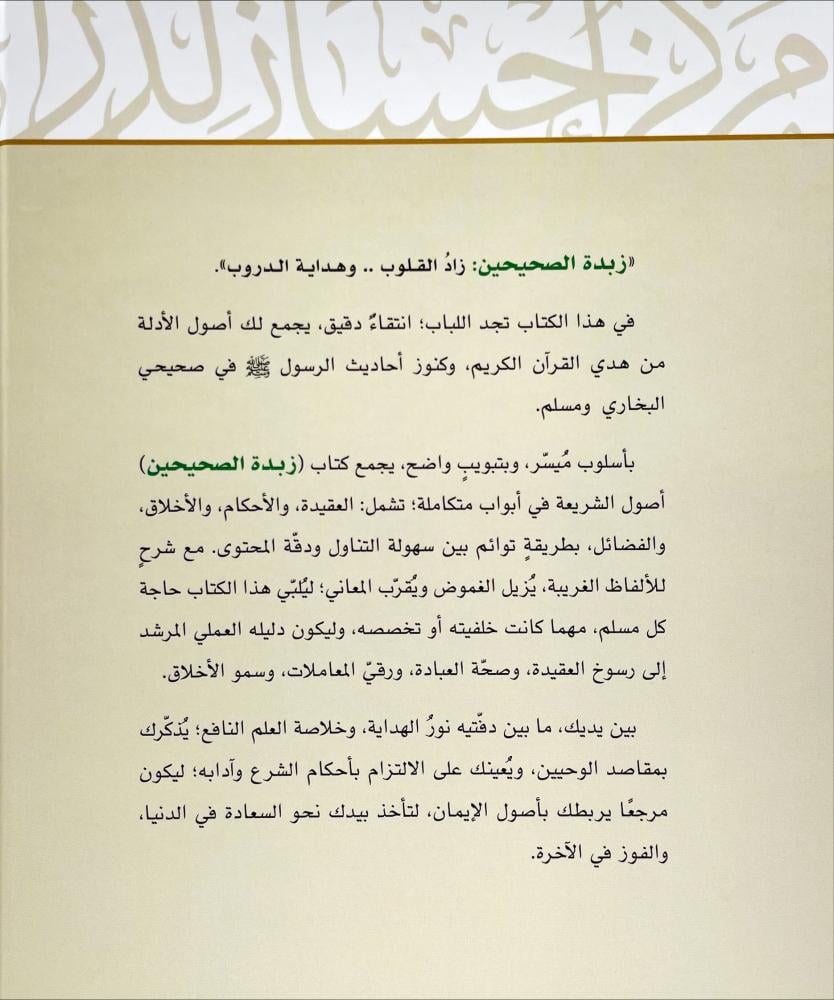 مركز إحسان لدرا
«زبدة الصحيحين: زادُ القلوب .. وهداية الدروب».
في هذا الكتاب تجد اللباب؛ انتقاءٌ دقيق، يجمع لك أصول الأدلة
من هدي القرآن الكريم، وكنوز أحاديث الرسول ﷺ في صحيحي
البخاري ومسلم.
بأسلوب مُيسّر، وبتبويبٍ واضح، يجمع كتاب (زبدة الصحيحين)
أصول الشريعة في أبواب متكاملة؛ تشمل: العقيدة، والأحكام، والأخلاق،
والفضائل، بطريقةٍ توائم بين سهولة التناول ودقّة المحتوى. مع شرحٍ
للألفاظ الغريبة، يُزيل الغموض ويُقرّب المعاني؛ ليُلبّي هذا الكتاب حاجة
كل مسلم، مهما كانت خلفيته أو تخصصه، وليكون دليله العملي المرشد
إلى رسوخ العقيدة، وصحّة العبادة، ورقيّ المعاملات، وسمو الأخلاق.
بين يديك، ما بين دفّتيه نورُ الهداية، وخلاصة العلم النافع؛ يُذكّرك
بمقاصد الوحيين، ويُعينك على الالتزام بأحكام الشرع وآدابه؛ ليكون
مرجعًا يربطك بأصول الإيمان، لتأخذ بيدك نحو السعادة في الدنيا،
والفوز في الآخرة.